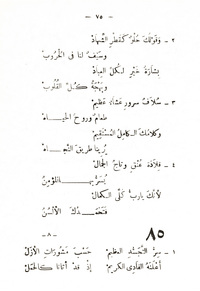 - ٧٥ -
٢ - وقولك حلو كقطر الشهاد
وسيف لنا في الحروب
بشارة خير لكل العباد
وبهجة كل القلوب
٣ - سلاف سرور غذاء عظيم
طعام وروح الحياة
وكلامك الكامل المستقيم
يرينا طريق النجاة
٤ - فلافه عنق وتاج الجمال
يسر بها المؤمن
لأنك يارب كلي الكمال
فتحمدك الألسن
٨٥
- ٨ -
١ - سر التجسد العظيم حسب مشورات الأزل
أعلنه الفادي الكريم إذ قد أتانا كالحمل